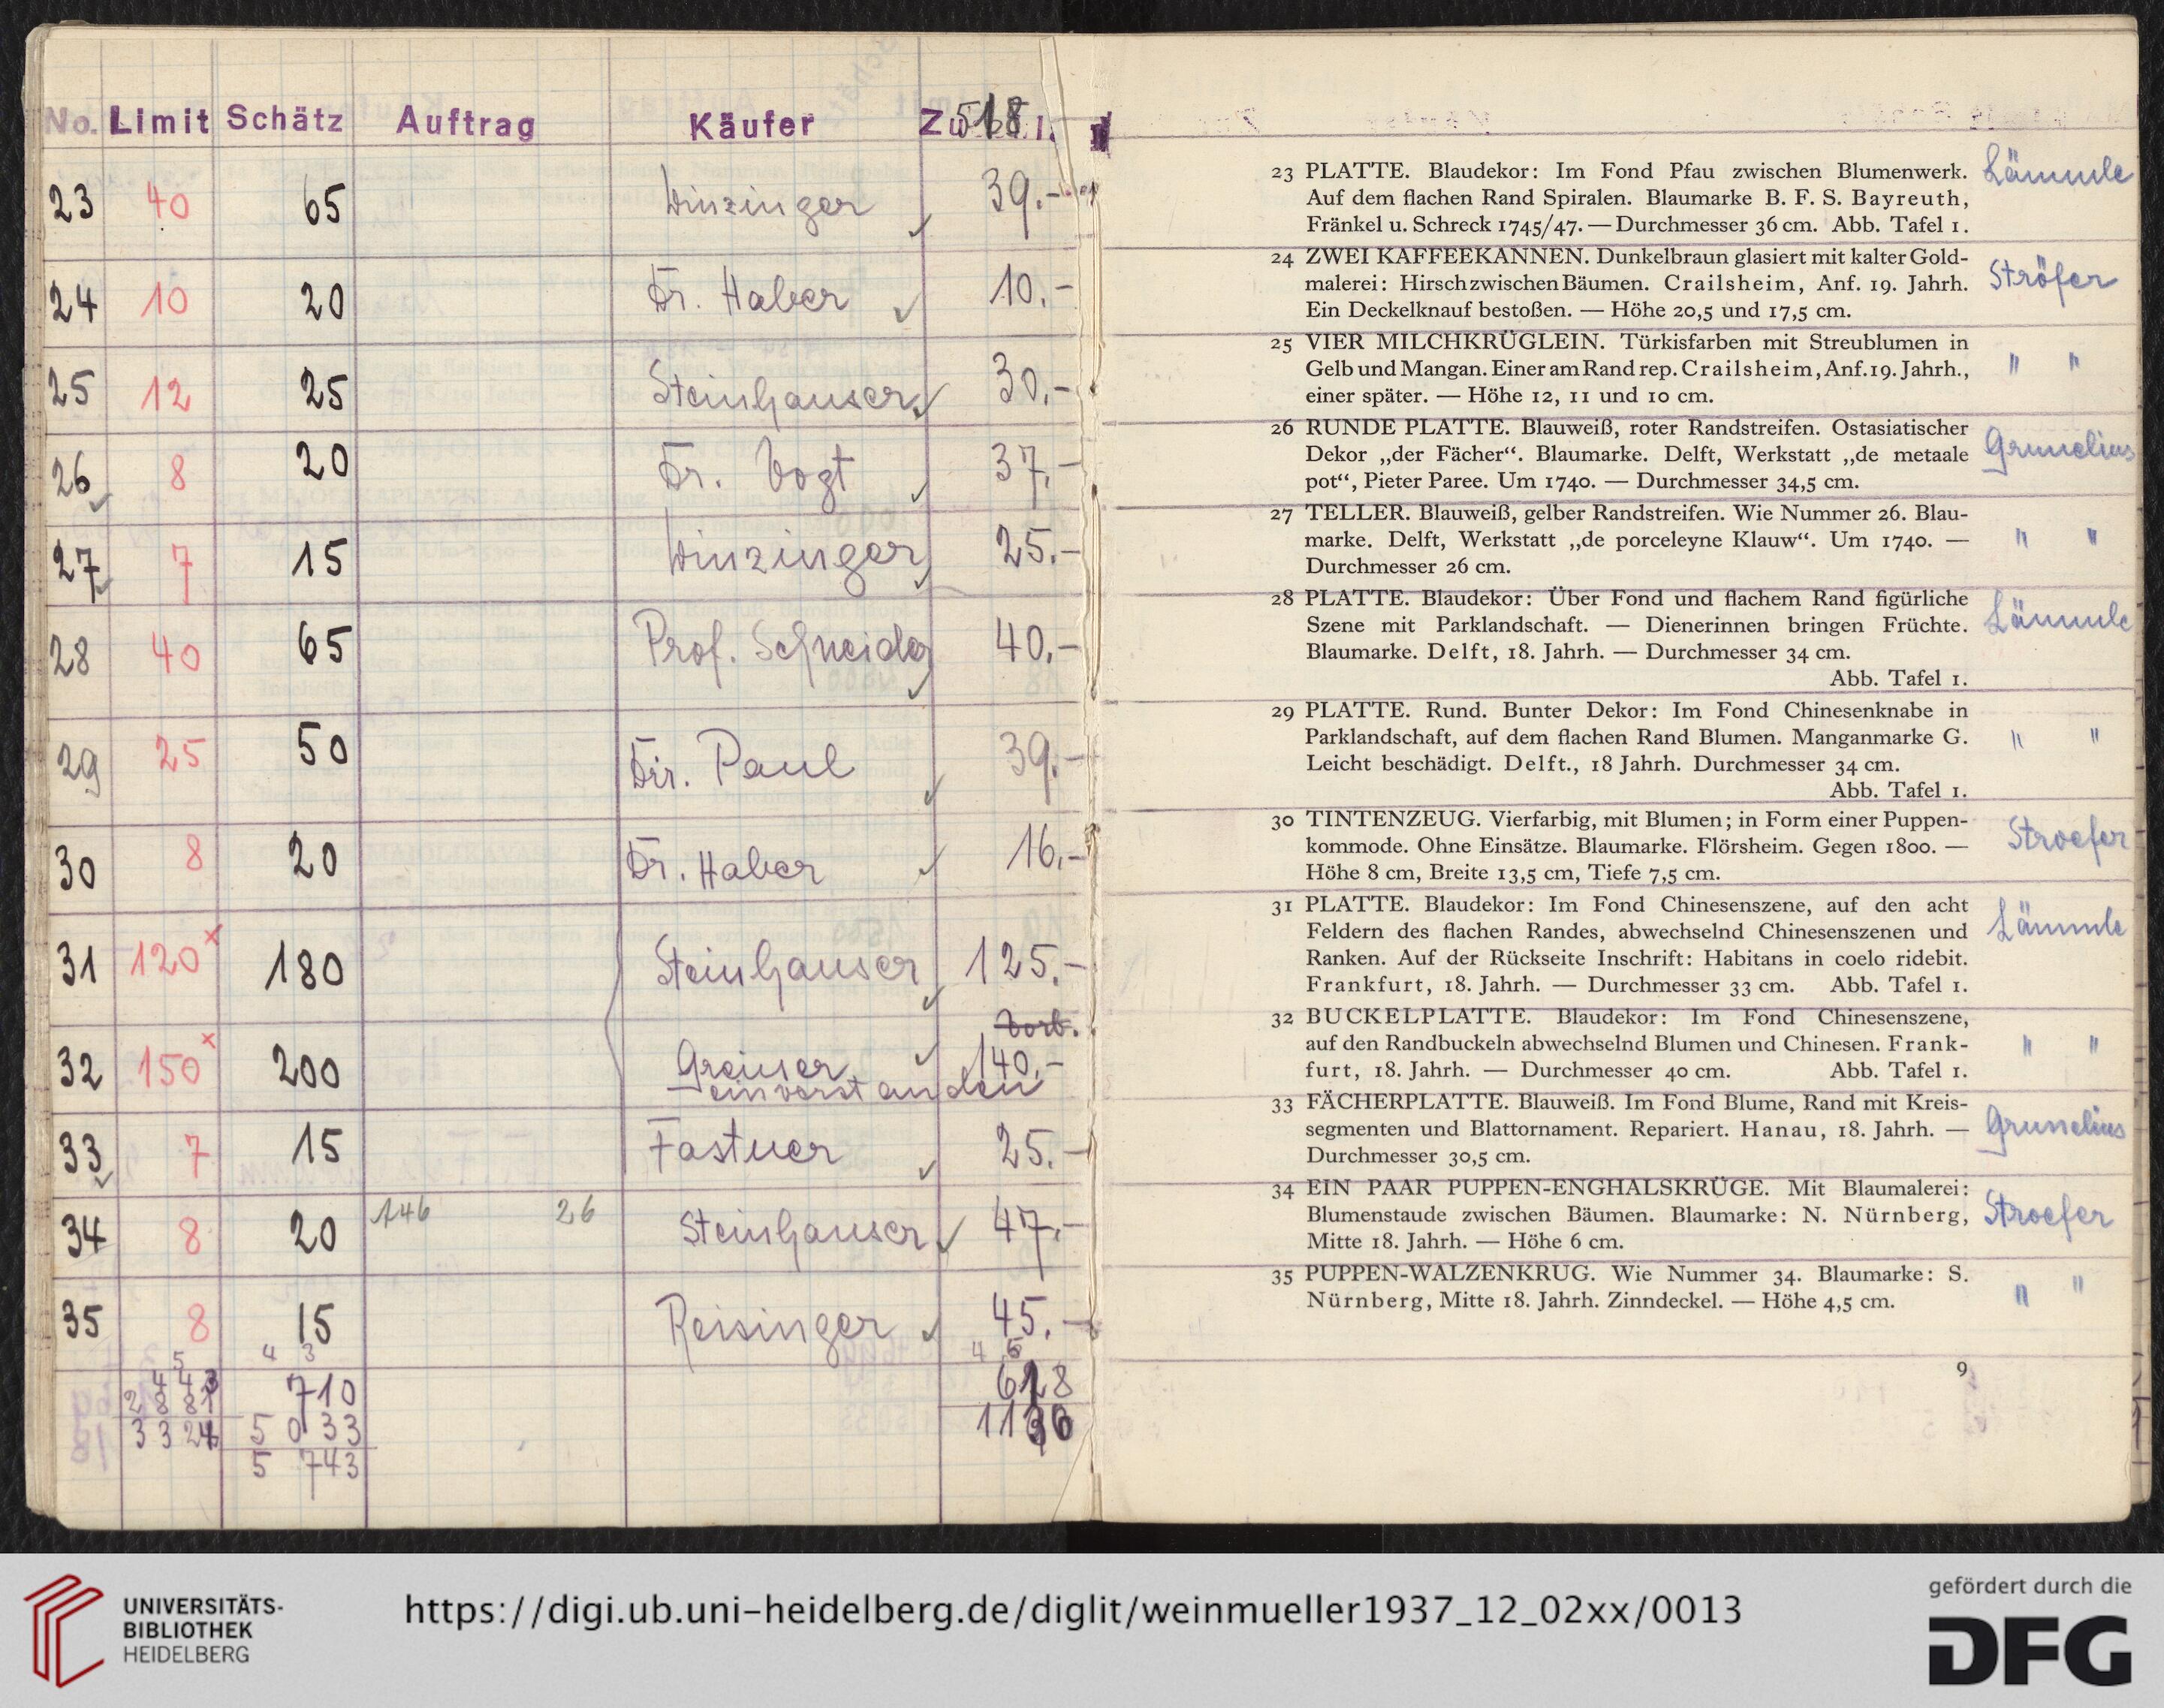 No. Limit Schätz Auftrag Käufer 518
23 40 65 Winzinger 39.-
24 10 20 Dr. Haber 10.-
25 12 25 Steinhauser 30.-
26 8 20 Dr. Vogt 37.-
27 7 15 Winzinger 25.-
28 40 65 Prof. Schneider 40.-
29 25 50 Dir. Paul 39.-
30 8 20 Dr. Haber 16.-
31 120x 180 Steinhauser 125.-
Vorb.
32 150x 200 Greiner 140.-
einverstanden
33 7 15 Fastner 25.-
34 8 20 146 26 Steinhauser 47.-
35 8 15 Reisinger 45.-
5 4 3 4 6
710
5 0 33
3 3 24
5 743
23 PLATTE. Blaudekor: Im Fond Pfau zwischen Blumenwerk. Lämmle
Auf dem flachen Rand Spiralen. Blaumarke B. F. S. Bayreuth,
Fränkel u. Schreck 1745/47. — Durchmesser 36 cm. Abb. Tafel 1.
24 ZWEI KAFFEEKANNEN. Dunkelbraun glasiert mit kalter Gold-
malerei: Hirsch zwischen Bäumen. Crailsheim, Anf. 19. Jahrh. Ströfer
Ein Deckelknauf bestoßen. — Höhe 20,5 und 17,5 cm.
25 VIER MILCHKRÜGLEIN. Türkisfarben mit Streublumen in
Gelb und Mangan. Einer am Rand rep. Crailsheim, Anf. 19. Jahrh., " "
einer später. — Höhe 12, 11 und 10 cm.
26 RUNDE PLATTE. Blauweiß, roter Randstreifen. Ostasiatischer
Dekor „der Fächer“. Blaumarke. Delft, Werkstatt „de metaale Grunelius
pot“, Pieter Paree. Um 1740. — Durchmesser 34,5 cm.
27 TELLER. Blauweiß, gelber Randstreifen. Wie Nummer 26. Blau-
marke. Delft, Werkstatt „de porceleyne Klauw“. Um 1740. — " "
Durchmesser 26 cm.
28 PLATTE. Blaudekor: Über Fond und flachem Rand figürliche
Szene mit Parklandschaft. — Dienerinnen bringen Früchte. Lämmle
Blaumarke. Delft, 18. Jahrh. — Durchmesser 34 cm.
Abb. Tafel 1.
29 PLATTE. Rund. Bunter Dekor: Im Fond Chinesenknabe in
Parklandschaft, auf dem flachen Rand Blumen. Manganmarke G. " "
Leicht beschädigt. Delft., 18 Jahrh. Durchmesser 34 cm.
Abb. Tafel 1.
30 TINTENZEUG. Vierfarbig, mit Blumen; in Form einer Puppen-
kommode. Ohne Einsätze. Blaumarke. Flörsheim. Gegen 1800. — Stroefer
Höhe 8 cm, Breite 13,5 cm, Tiefe 7,5 cm.
31 PLATTE. Blaudekor: Im Fond Chinesenszene, auf den acht
Feldern des flachen Randes, abwechselnd Chinesenszenen und Lämmle
Ranken. Auf der Rückseite Inschrift: Habitans in coelo ridebit.
Frankfurt, 18. Jahrh. — Durchmesser 33 cm. Abb. Tafel 1.
32 BUCKELPLATTE. Blaudekor: Im Fond Chinesenszene,
auf den Randbuckeln abwechselnd Blumen und Chinesen. Frank- " "
furt, 18. Jahrh. — Durchmesser 40 cm. Abb. Tafel 1.
33 FÄCHERPLATTE. Blauweiß. Im Fond Blume, Rand mit Kreis-
segmenten und Blattornament. Repariert. Hanau, 18. Jahrh. — Grunelius
Durchmesser 30,5 cm.
34 EIN PAAR PUPPEN-ENGHALSKRÜGE. Mit Blaumalerei:
Blumenstaude zwischen Bäumen. Blaumarke: N. Nürnberg, Stroefer
Mitte 18. Jahrh. — Höhe 6 cm.
35 PUPPEN-WALZENKRUG. Wie Nummer 34. Blaumarke: S.
Nürnberg, Mitte 18. Jahrh. Zinndeckel. — Höhe 4,5 cm. " "
9
UNIVERSITÄTS-
BIBLIOTHEK
HEIDELBERG
https://digi.ub.uni-heidelberg.de/diglit/weinmueller1937_12_02xx/0013
gefördert durch die
DFG